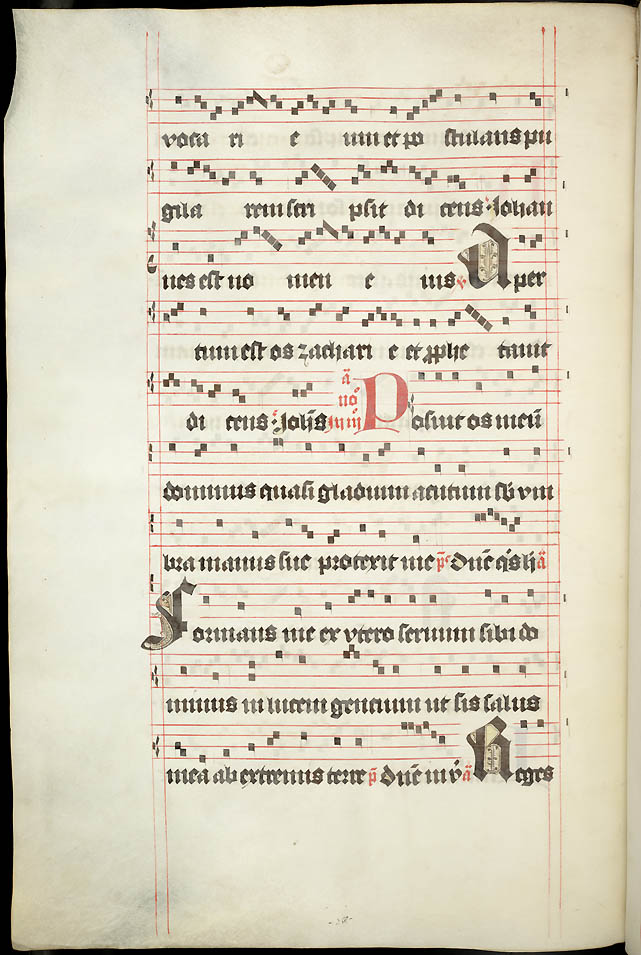 voca ri e um et po stulans pu
gila rem scri psit di cens Johan
nes est no men e ius ℣ Aper
tum est os zachari e et ꝓphe tauit
di cens Joh̄is
ā
no͛
Posuit os meū
dominus quasi gladium acutum sb̄ vm
bra manus sue protexit me p̄s Dn̄e q̄s hī ā
Formans me ex vtero seruum sibi do
minus in lucem gentium ut sis salus
mea ab extremis terre p̄ Dn̄e in v̓ ā Reges